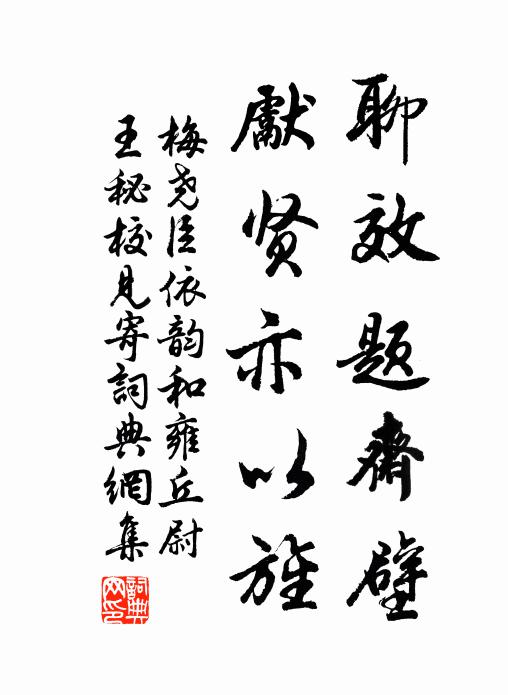 聊效题齋壁
獻贤亦以旌
梅尧臣依韵和雍丘尉
王秘校見寄詞典網集
詞典网印